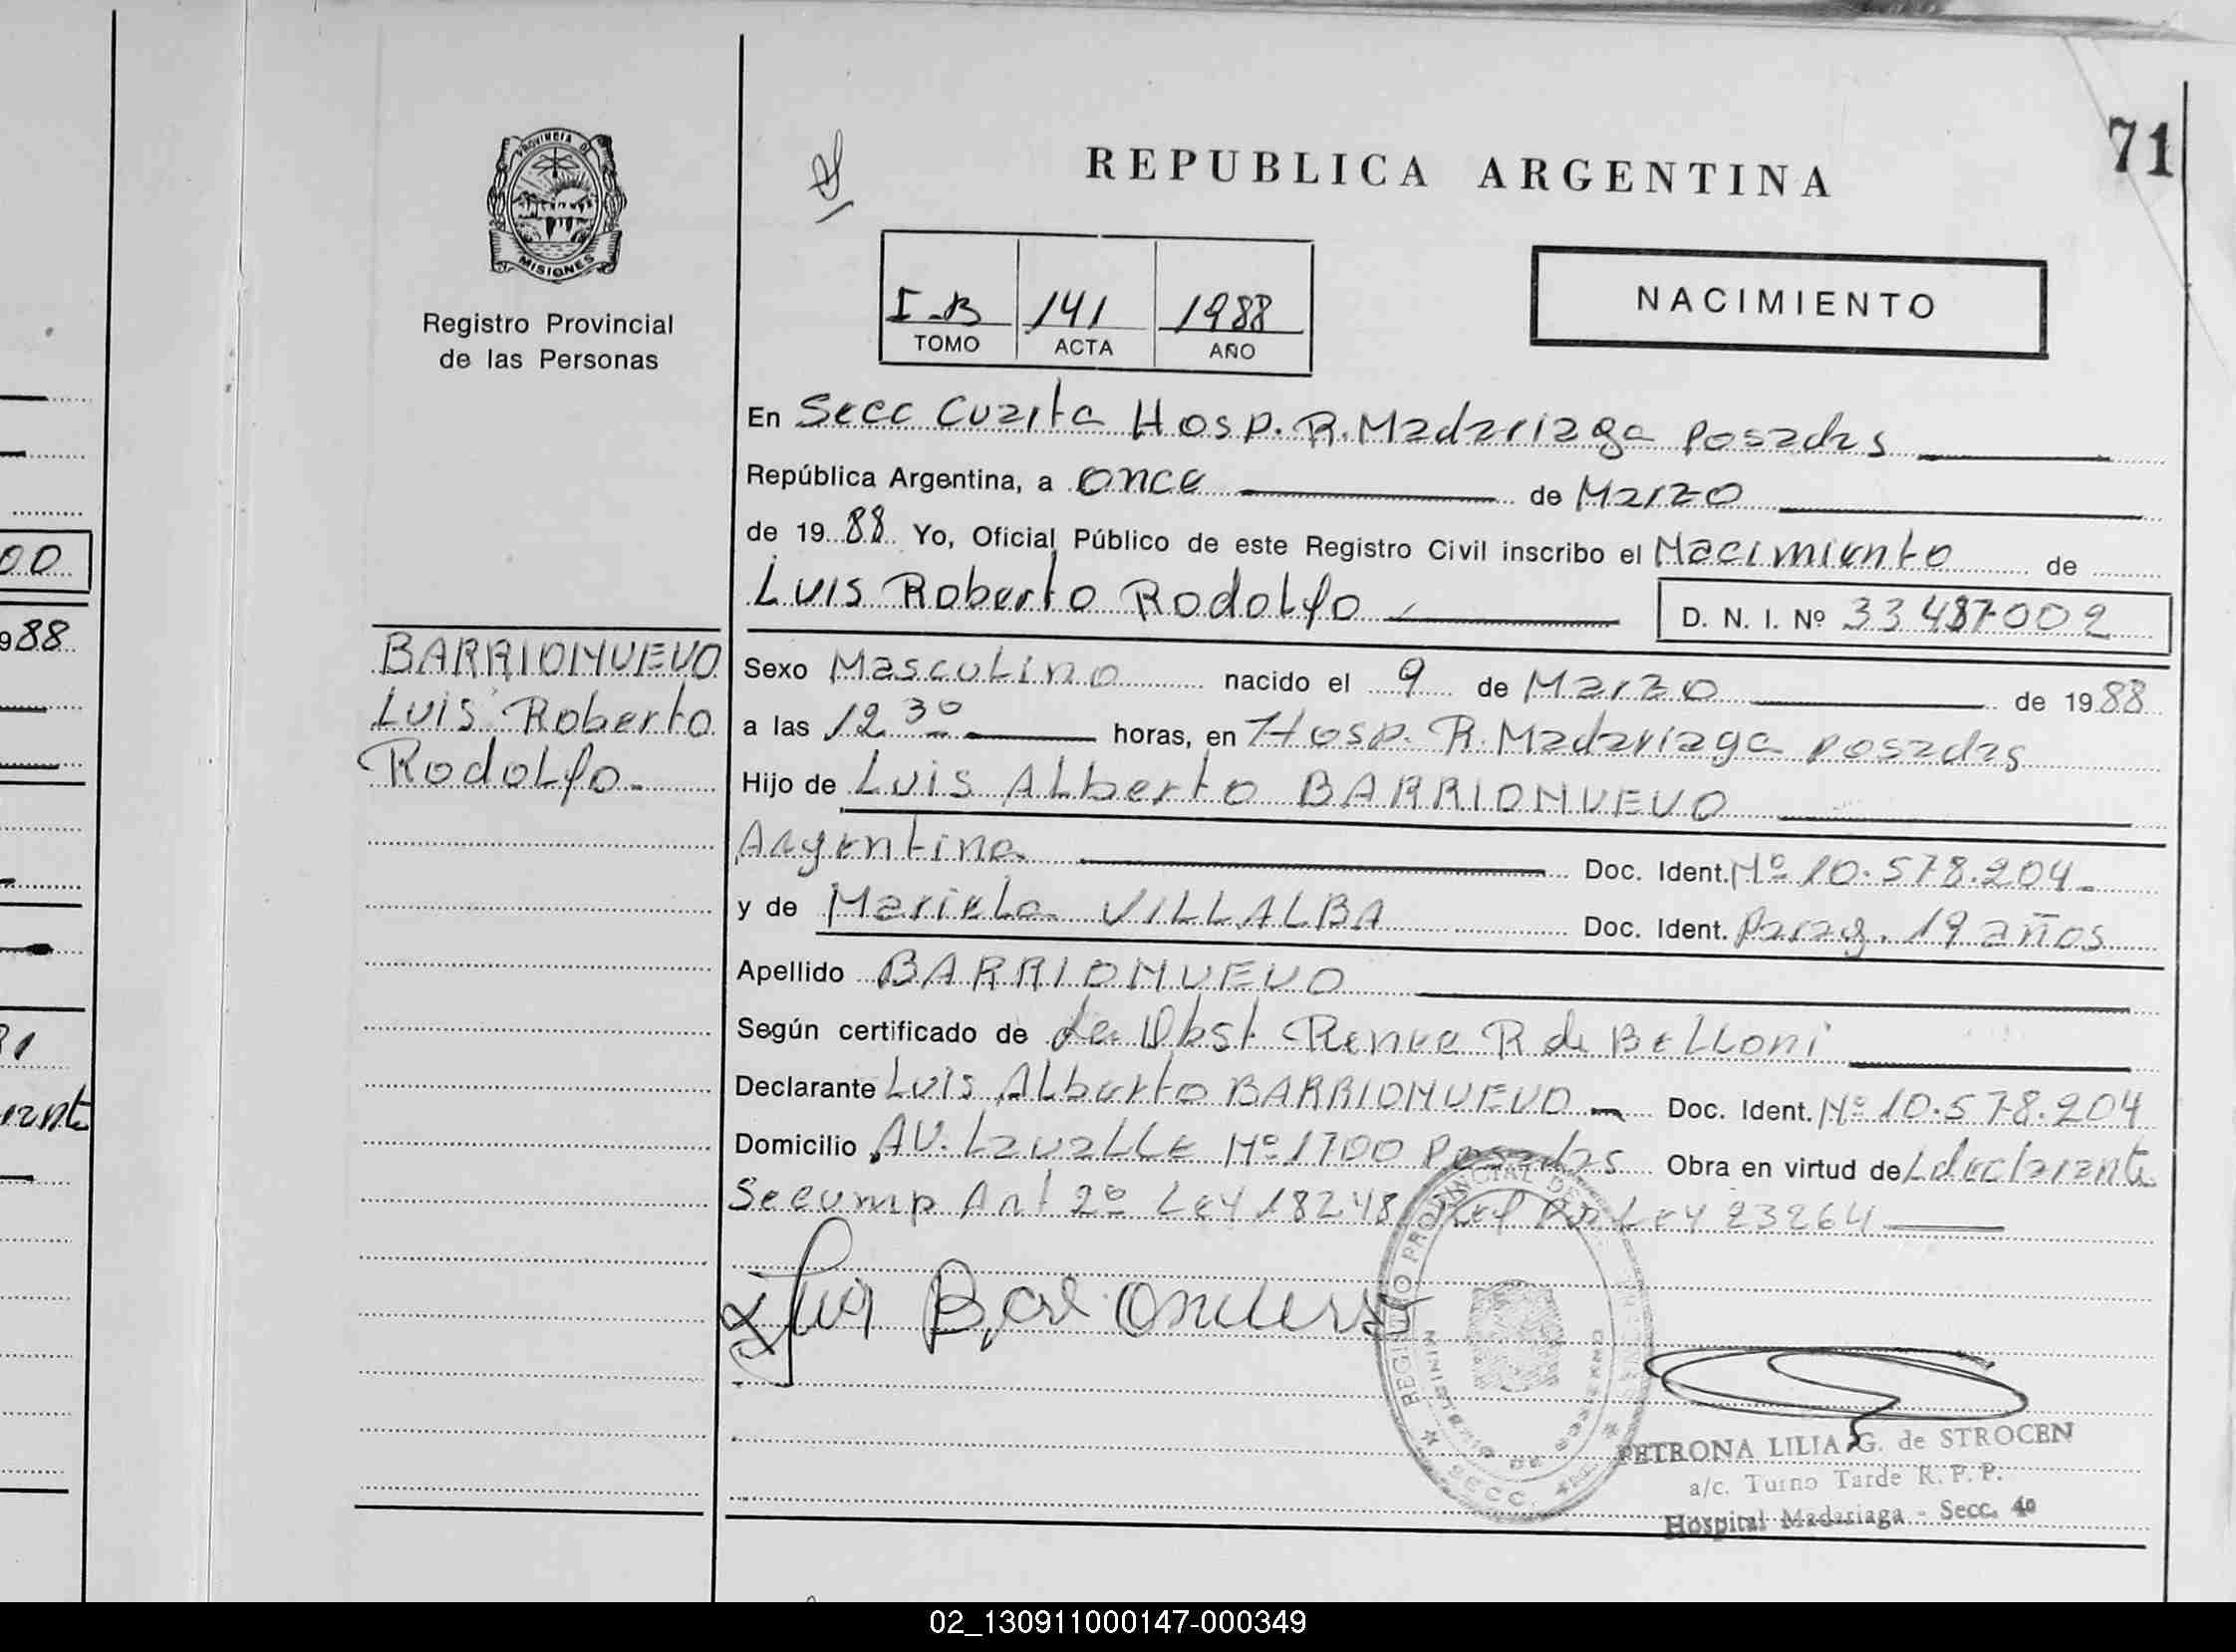 00
988
71
PROVINCIA D
MISIONES
Registro Provincial
de las Personas
REPUBLICA ARGENTINA
I-B 141 1988
TOMO ACTA AÑO
NACIMIENTO
En Secc Cuarta Hosp. R. Madariaga Posadas
República Argentina, a once de Marzo
de 1988 Yo, Oficial Público de este Registro Civil inscribo el Nacimiento de
Luis Roberto Rodolfo D. N. I. Nº 33487002
BARRIONUEVO
Luis Roberto
Rodolfo.
Sexo Masculino nacido el 9 de Marzo de 1988
a las 12 30 horas, en Hosp. R. Madariaga Posadas
Hijo de Luis Alberto BARRIONUEVO
Argentino Doc. Ident. Nº 10.578.204.
y de Mariela VILLALBA Doc. Ident. Parag. 19 años
Apellido BARRIONUEVO
Según certificado de La Obst Renee R de Belloni
Declarante Luis Alberto BARRIONUEVO Doc. Ident. Nº 10.578.204
Domicilio AV. Lavalle Nº 1700 Posadas Obra en virtud de L declarante
Secump Art 2º Ley 18248 Ley 23264
Luis Barrionuevo
REGISTRO PROVINCIAL DE
MINISTERIO DE
SECC. 4
PETRONA LILIA G. de STROCEN
a/c. Turno Tarde R. P. P.
Hospital Madariaga - Secc. 4º
02_130911000147-000349